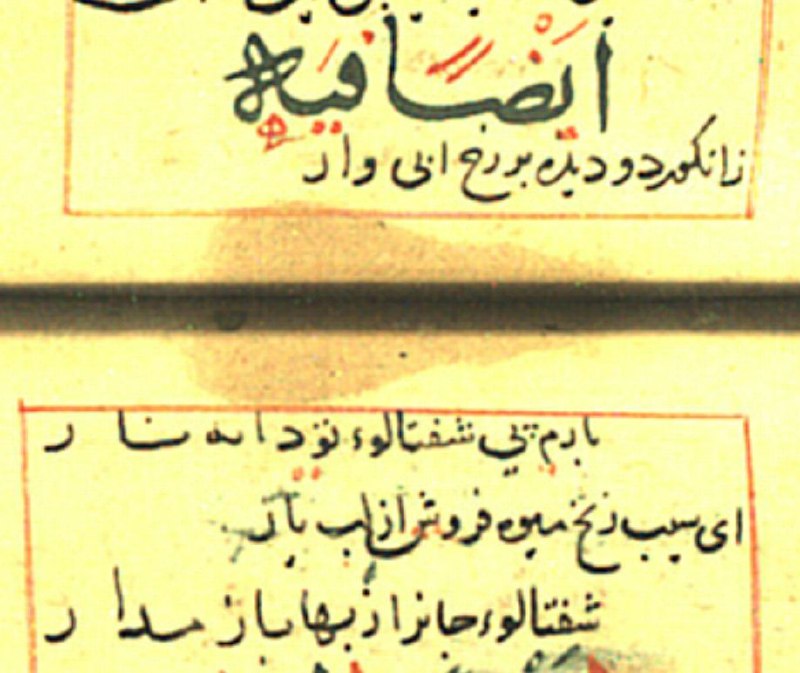 ایضا فیه
زانکور دو دیده بر رخ ابی وار
بارم پی شفتالوء تو دانه نار
ای سیب زنخ میوه فروش از لب یار
شفتالوء جانرا ز بها باز مدار